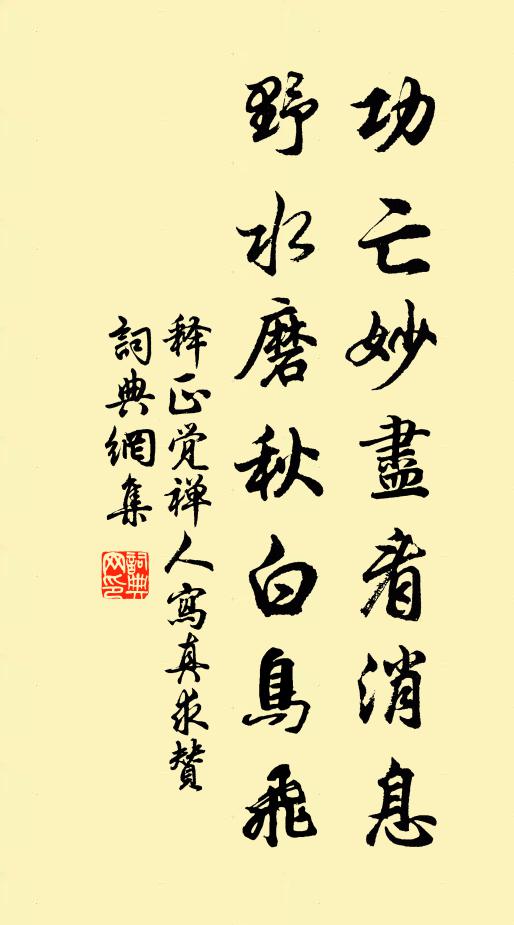 功亡妙盡者消息
野水磨秋白鳥飛
释正觉禅人寫真求贊
詞典網集
詞典網印